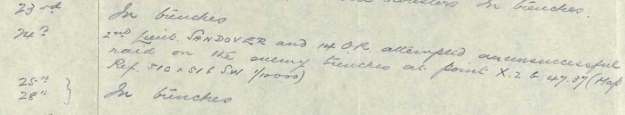 relieved Foresters in trenches.
23rd In trenches
24th 2nd Lieut. SANDOVER and 14 O.R. attempted an unsuccessful
raid on the enemy trenches at point X.2.b.47.37 (Map
Ref. 51C + 51B SW 1/10000)
25th
28th } In trenches